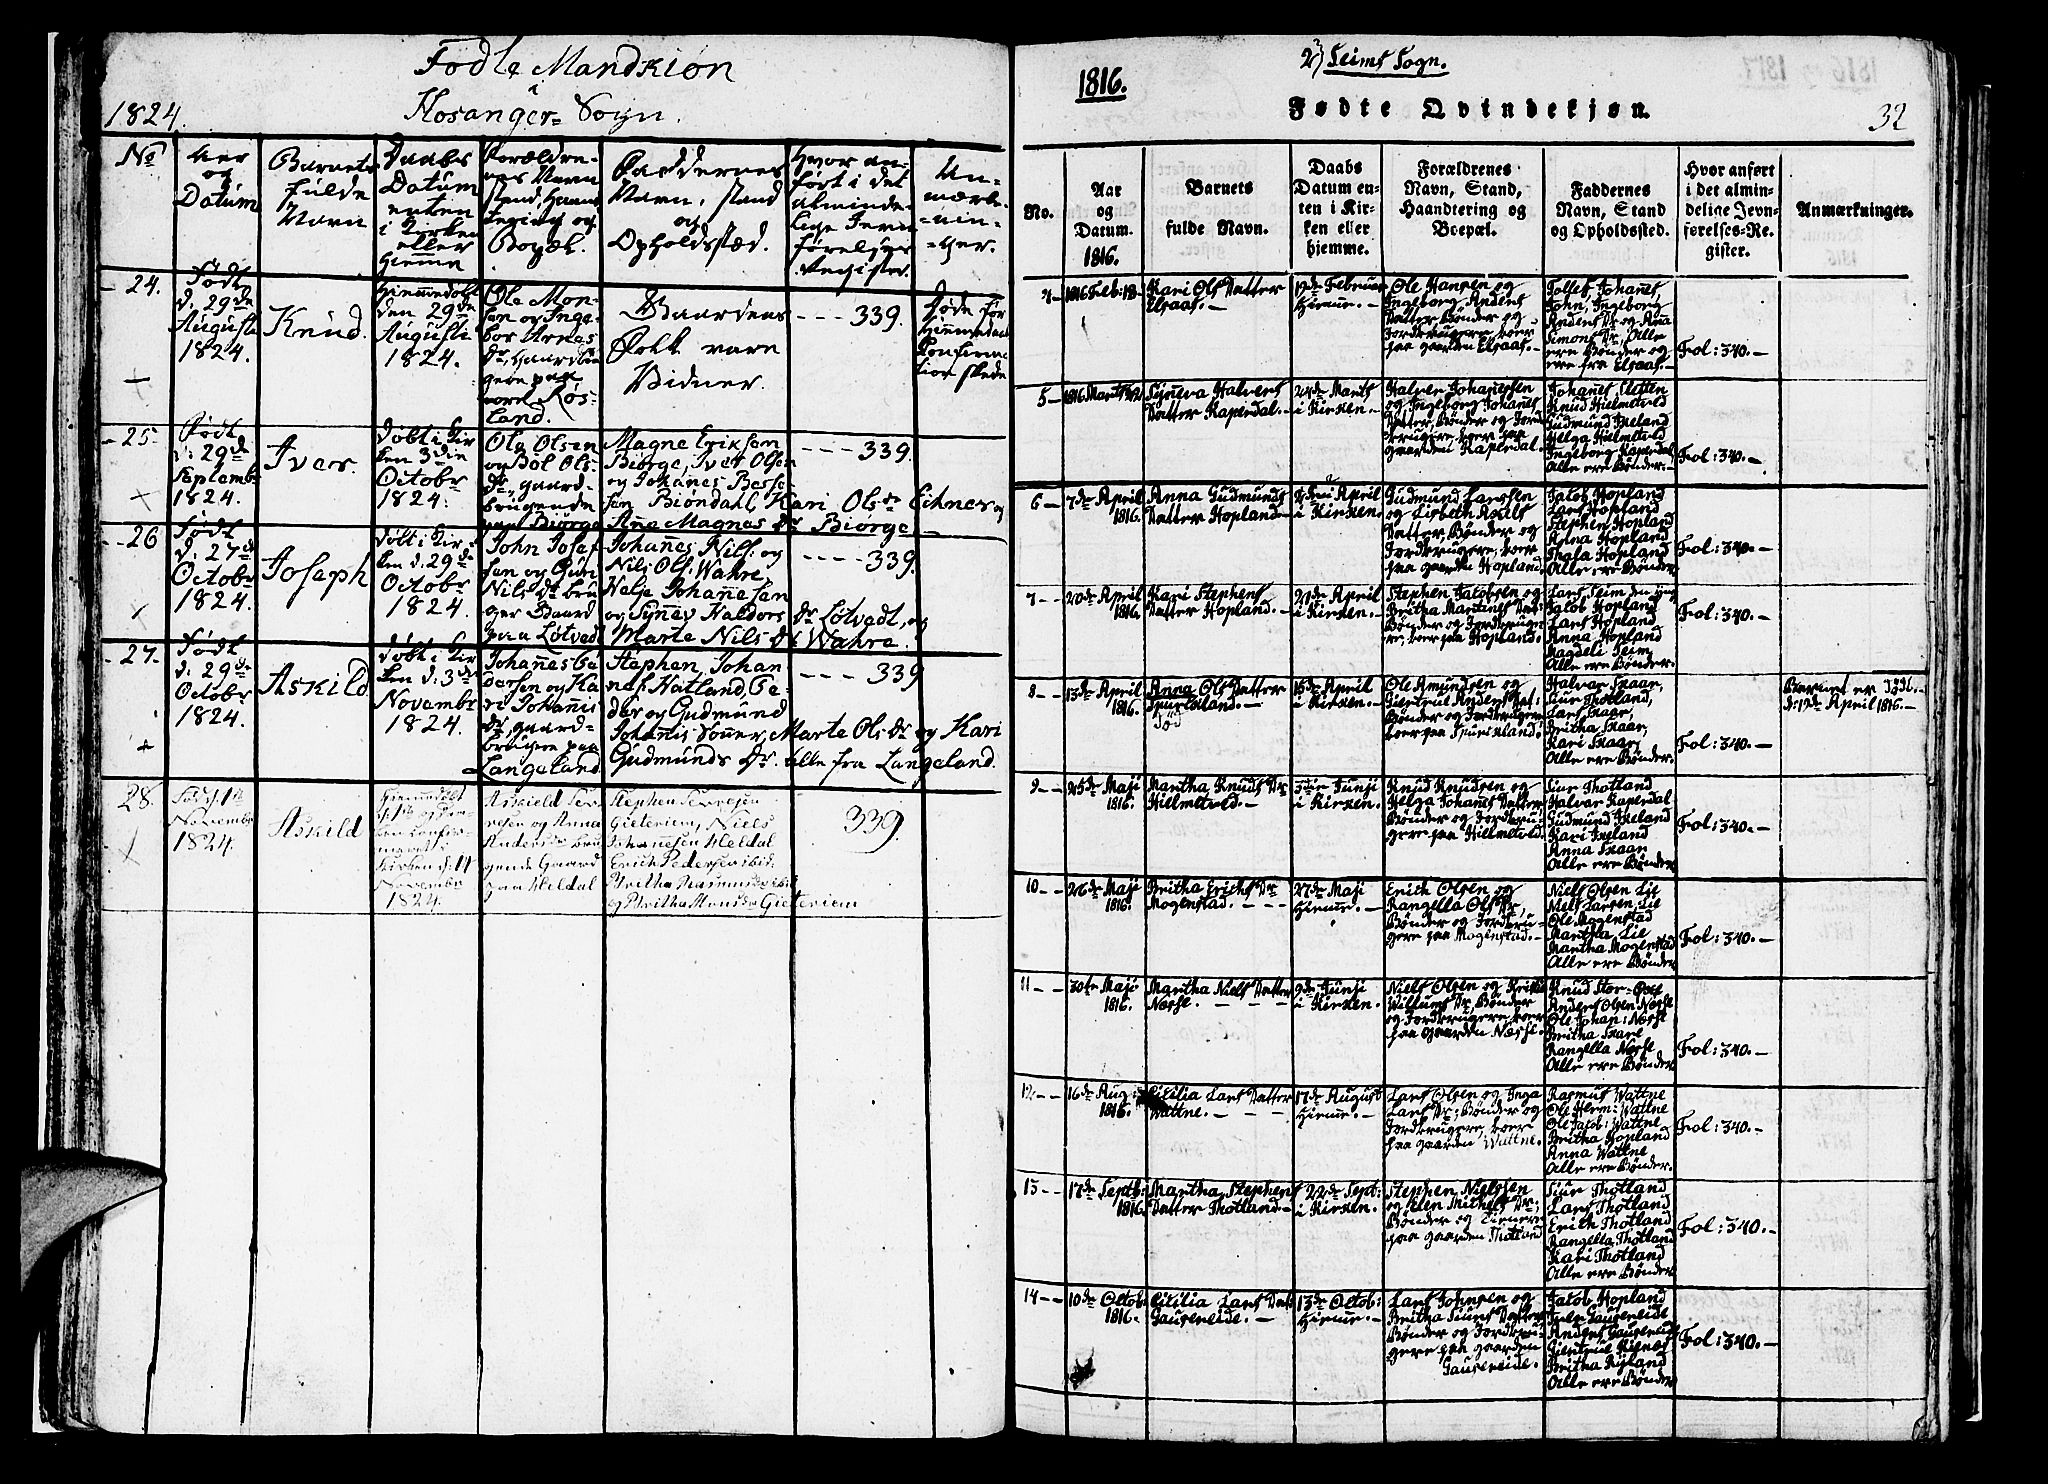 Fødte Mandkiøn
i
Hosanger Sogn.
1824.
No
Aar
og
Datum
Barnets
fulde
Navn
Daabs
Datum
enten
i Kirken
eller
hiemme
Forældre-
nes Navn
Stand, Haand-
tering og
Bopæl.
Faddernes
Navn, Stand
og
Opholdsstæd.
Hvor an-
ført i det
alminde-
lige Jevn-
førelses
Register.
An-
mærk-
nin-
ger.
24.
Født
d. 29de
Augusti
1824.
Knud.
Hiemmedøbt
den 29de
Augusti
1824.
Ole Mon-
sen og Inge-
bor Arnes
Dr. Gaardbru-
gere paa
nore Røs-
land.
Gaardens
Folk vare
Vidner.
- - - 339.
Døde før
hiemmedaabs
Confirma-
tion skede
25
Født
d: 29de
Septembr
1824.
Iver.
Døbt i Kir
ken 3die
Octobr
1824.
Ole Olsen
og Bøl Ols-
Dr., gaard-
brugende
paa Biørge
Magne Eriksen
Biørge, Iver Olsen
og Johanes Besse-
sen Biøndahl, Kari Olsdr Eichner og
Ane Magnes Dr Biorge
- - - 339.
26
Født
d: 27de
Octobr
1824.
Joseph
Døbt i Kir
ken d. 29de
Octobr
1824.
John Josef
sen og Guri
Nils Dr bru
ger Gaard
paa Løtvedt
Johannes Nils: og
Nils Ols. Wahre,
Helje Johannesen
og Synev Haldors Dr Løtvedt, og
Marte Nils Dr Wahre.
- - - 339.
27.
Født
d. 29de
Octobr
1824.
Askild.
Døbt i Kir
ken d: 3de
Novembr
1824.
Johannes Pe
dersen og Ka
ri Johanis
Dr, gaard-
brugere paa
Langeland.
Stephen Johan
nes. Hatland, Pe-
der og Gudmund
Johanis Sønner, Marte Ols Dr og Kari
Gudmunds Dr. alle fra Langeland.
- - - 339
28.
Novembr
1824.
Askild
Novembr
1824.
Askield Ser-
resen og Anne
Andersdr bru
gende Gaard
paa Meldal
Stephen Serresen
Gieteriem, Niels
Johannesen Meldal
Erich Pedersen ibid.
Britha Rasmusdr ibid
og Britha Monsdr Gieteriem
339.
1816.
2) Seims Sogn.
Fødte Qvindekjøn.
32
No.
Aar
og
Datum.
1816.
Barnets
fulde Navn.
Daabs
Datum en-
ten i Kir-
ken eller
hjemme.
Forældrenes
Navn, Stand,
Haandtering og
Boepæl.
Faddernes
Navn, Stand
og Opholdssted.
Hvor anført
i det almin-
delige Jevn-
førelses-Re-
gister.
Anmærkninger.
4 -
1816 Feb: 18 -
Kari Ols Datter
Elsaas. -
19de Februar
Hiemme. -
Ole Hansen og
Ingeborg Anders
Datter, Bønder og
Jordbrugere, boer
paa gaarden Elsaas. -
Tolles, Johanes
John, Ingeborg
Anders Dr og Anna
Simons Dr, Alle
ere Bønder og
ere fra Elsaas. -
Fol: 340. -
5 -
1816 Marts 22.
Synneva Halvers
Datter Raperdal. -
24de Marts
i Kirken. -
Halver Johanessen
og Ingeborg Johanes
Datter, Bønder og Jord
brugere, boer paa
gaarden Raperdal. -
Johanes Sletten
Knud Hielmtveld
Gudmund Ikeland
Helga Hielmtveld
Ingeborg Raperdal
Alle ere Bønder. -
Fol: 340. -
6 -
7de April
1816.
Anna Gudmunds
Datter Hopland. -
April
i Kirken. -
Gudmund Larssen
og Lisbeth Axels
Datter, Bønder og
Jordbrugere, boer
paa gaarden Hopland.
Jacob Hopland
Lars Hopland
Stephen Hopland
Anna Hopland
Thala Hopland
Alle ere Bønder
Fol: 340. -
7 -
20de April
1816.
Kari Stephens
Datter Hopland.
21de April
i Kirken. -
Stephen Jacobsen og
Britha Martines Dat:
Bønder og Jordbruge-
re, boer paa Hopland. -
Lars Seim den yng:
Jacob Hopland
Lars Hopland
Anna Hopland
Magdeli Seim
Alle ere Bønder. -
Fol: 340. -
8 - -
13de April
1816.
Anna Ols Datter
Spurkeland. -
Død
15de April
i Kirken. -
Ole Amundsen og
Giertrue Anders Dat:
Bønder og Jordbrugere
boer paa Spurkeland.
Halvar Skaar,
Siur Thotland,
Lars Skaar,
Britha Skaar,
Kari Skaar,
Alle ere Bønder.
Fol: 340. -
Barnet er Død. -
d: 19de April 1816. -
9 - -
25de Maji
1816.
Martha Knuds Dr
Hielmetveld. -
3die Junji
i Kirken. -
Knud Knudsen og
Helga Johanes Datter
Bønder og Jordbru-
gere paa Hielmetveld.
Siur Thotland
Halvar Raperdal
Gudmund Ikeland
Kari Ikeland
Anna Skaar
Alle ere Bønder
Fol: 340. -
10 - -
26de Maji
1816.
Britha Erichs Dr
Mogenstad. - - -
27de Maji
Hiemme. -
Erich Olsen og
Rangella Ols Dr,
Bønder og Jordbru-
gere paa Mogenstad. -
Niels Olsen Lie
Niels Larsen Lie
Ole Mogenstad
Martha Lie
Martha Mogenstad
Alle ere Bønder
Fol: 340. -
11 - -
30te Maji
1816.
Martha Niels Datter
Nosse. -
2de Junji
i Kirken. -
Niels Olsen og
Willums Dr, Bønder
og Jordbrugere boer
paa gaarden Nosse.
Knud Stor-Oxe
Anders Olsen Nosse
Ole Johan: Nosse
Britha Skare
Rangella Nosse
Alle ere Bønder
Fol: 340. -
12 - -
16de Aug:
1816.
Cicilia Lars Datter
Wattne. - - -
17de August
Hiemme. -
Lars Olsen og Inga
Lars Dr; Bønder og
Jordbrugere, boer
paa gaarden Wattne.
Rasmus Wattne
Ole Herm: Wattne
Ole Jacob: Wattne
Britha Hopland
Anna Wattne
Alle ere Bønder.
Fol: 340. -
13 - -
17de Septb:
1816.
Martha Stephens
Datter Thotland. -
22de Sept:
i Kirken. -
Stephen Nielssen
og Elen Michels Dr;
Bønder og Tienere
paa gaarden Thotland
Siur Thotland
Lars Thotland
Erich Thotland
Rangella Thotland
Kari Thotland
Alle ere Bønder
Fol: 340. -
14 - -
10de Octob:
1816.
Cicilia Lars Dat:
Gausereide. -
13de Octob:
Hiemme. -
Lars Johnsen og
Britha Siurs Datter
Bønder og Jordbru-
gere paa gaarden
Gausereide.
Jacob Hopland
Gausereide
Anders Gausereide
Giertrue
Britha Ryland
Alle ere Bønder
Fol: 340. -